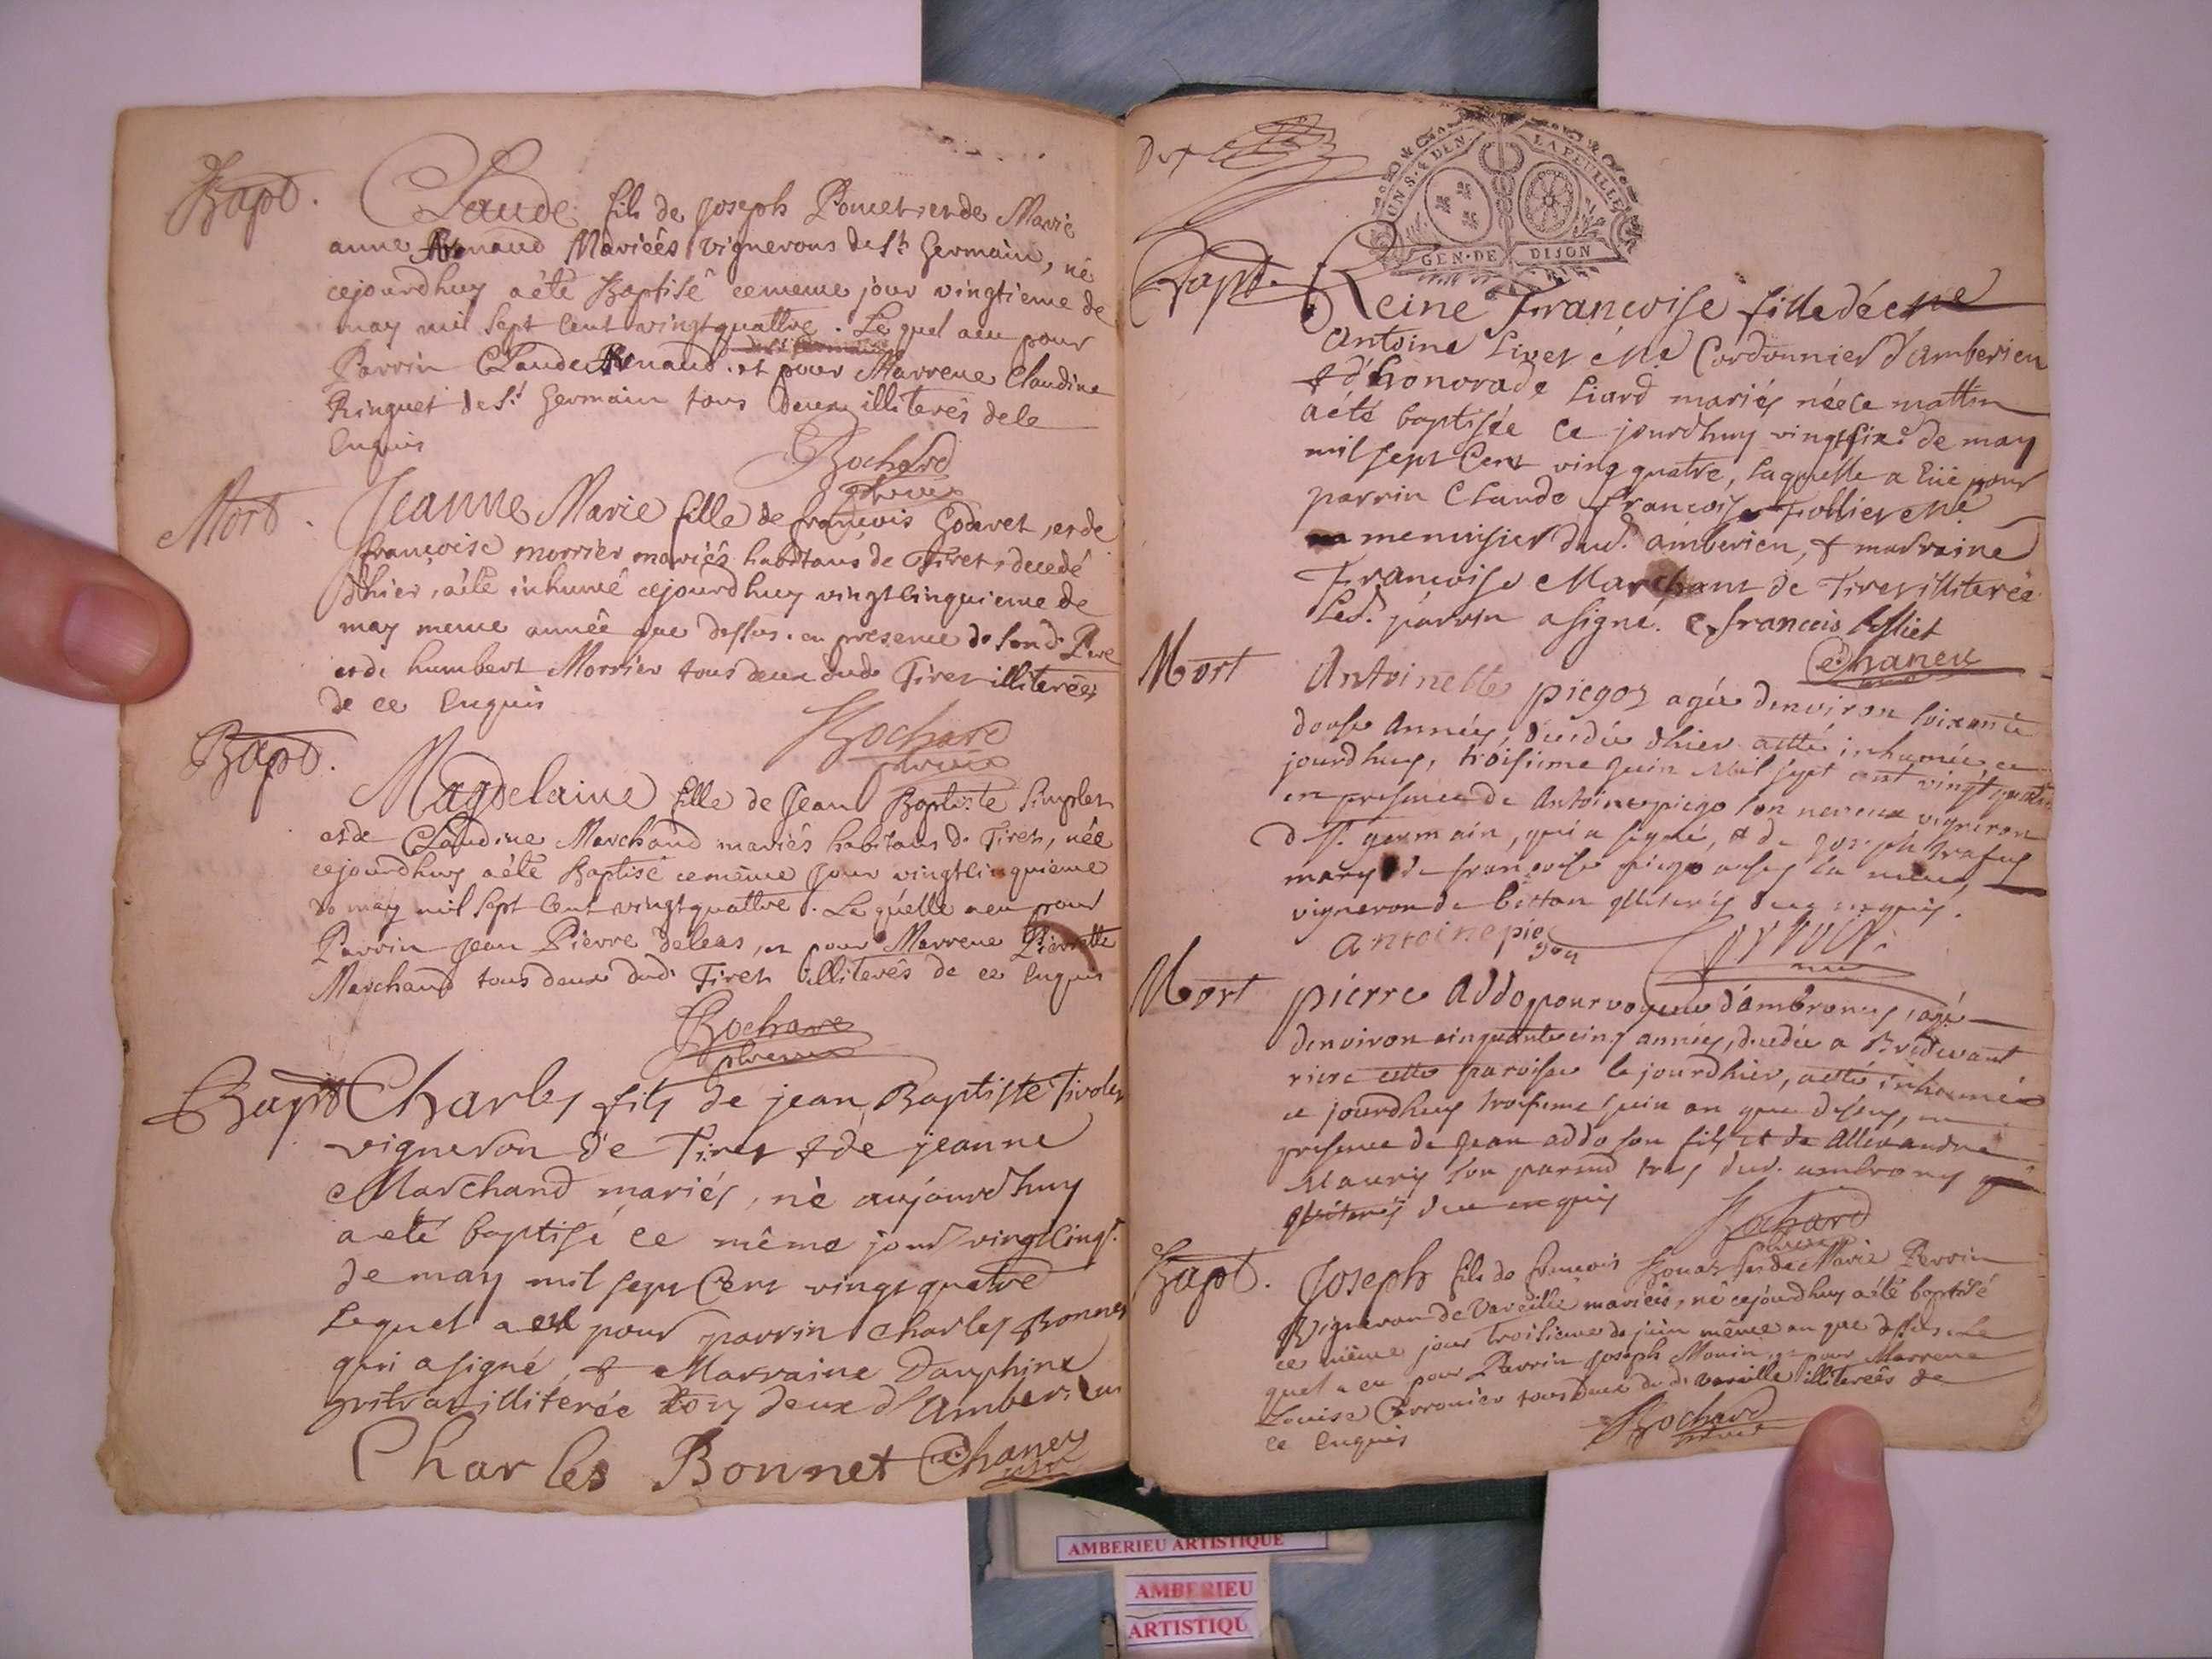 Bapt.
Claude fils de Joseph Poncet, et de Marie
anne Renaud Mariées vignerons de St. Germain, né
cejourdhuy a été Baptisé ce meme jour vingtieme de
may mil sept cent vingt quattre. Le quel a eu pour
Parrin Claude Renaud et pour Marrene Claudine
Ringuet de St. Germain tous deux illiterés de le
Enquis
Bochard
Mort.
Jeanne Marie fille de françois Goderet, et de
françoise morrier mariés habitans de Tiret, decedé
dhier, a été inhumé cejourdhuy vingt cinquieme de
may meme année que dessus. en presence de son d. Pere
et de humbert Morrier tous deux dud. Tiret illiterées
de ce Enquis
Bochard
Bapt.
Magdelaine fille de Jean Baptiste Simplet
et de Claudine Marchand mariés habitans de Tiret, née
cejourdhuy a été Baptisé ce même jour vingt cinquieme
de may mil sept cent vingt quattre. La quelle a eu pour
Parrin Jean Pierre Deleas, et pour Marrene Pierrette
Marchand tous deux dud. Tiret illiterés de ce Enquis
Bochard
Bapt
Charles fils de jean Baptiste Tirolet
vigneron de Tiret & de jeanne
Marchand mariés, né aujourdhuy
a eté baptisé ce même jour vingt cinq.
de may mil sept Cent vingt quatre
Lequel a eu pour parrin Charles Bonnet
qui a signé, & Marraine Dauphine
illiterée tous deux d'Amberieu
Charles Bonnet Chaney
UN S. 4 DEN. LA FEUILLE
GEN. DE DIJON
Bapt.
Reine Françoise fille de Me
Antoine Livet Me Cordonnier d'Amberieu
& d'honorade Liard mariés née ce mattin
a été baptisée ce jourdhuy vingt six.e de may
mil sept Cent ving quatre, laquelle a eüe pour
parrin Claude François Follier Me
menuisier dud. amberieu, & marraine
Françoise Marchant de Tiret illiterée
Led. parrin a signé. C. francois folliet
Chaney
Mort
Antoinette piegoz agée denviron soixante
douse années, decedée dhier a été inhumée ce
jourdhuy, troisieme juin Mil sept cent vingt quatre
en presence de Antoine piego son neveux vigneron
d St. germain, qui a signé, & de joseph
mary de françoise piego aussy sa niece,
vigneron de bettan illiterés de ce enquis.
antoine pie
goz
Mort
pierre Addo pourvoyeur d'ambronay, agé
denviron cinquante cinq années, decedée a Bredevant
riere cette paroisse le jourdhier, a été inhumée
ce jourdhuy troisieme juin an que dessus, en
presence de jean addo son fils et de Allexandre
Maury son parend tous dud. ambronay
illiterés de ce enquis
Bochard
Bapt.
Joseph fils de françois et de Marie Perrin
Vigneron de Vareille mariées, né cejourdhuy a été baptisé
ce même jour troisieme de juin même an que dessus. Le
quel a eu pour Parrin joseph Monin, et pour Marrene
Louise Carronier tous deux dud. vareille illiterées de
ce Enquis
Bochard
AMBERIEU ARTISTIQUE
AMBERIEU
ARTISTIQU